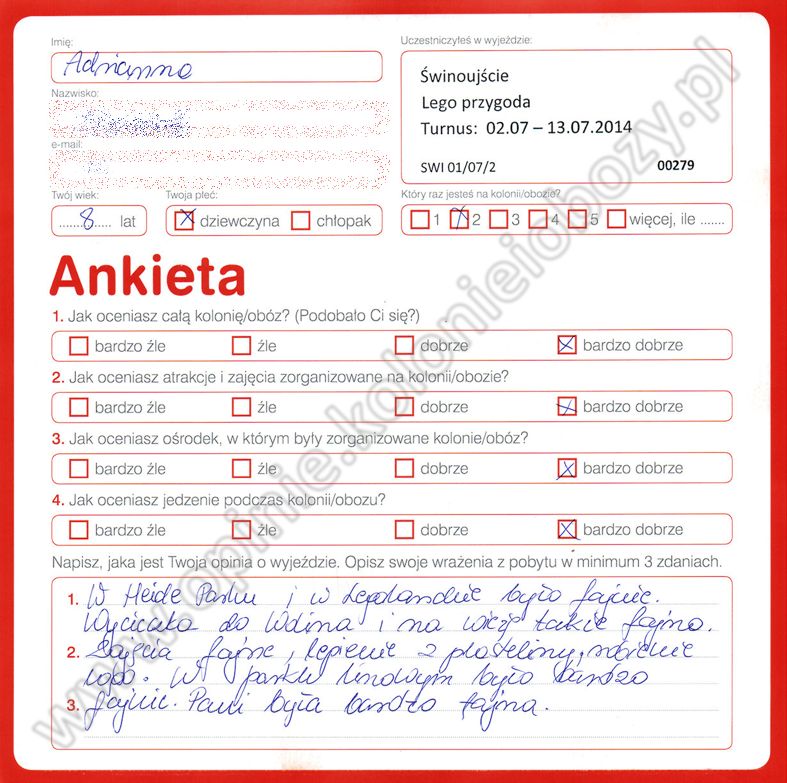 Imię:
Adrianna
Uczestniczyłeś w wyjeździe:
Świnoujście
Lego przygoda
Turnus: 02.07 – 13.07.2014
SWI 01/07/2 00279
Nazwisko:
e-mail:
Twój wiek:
.......8..... lat
Twoja płeć:
dziewczyna chłopak
Który raz jesteś na kolonii/obozie?
1 2 3 4 5 więcej, ile .......
Ankieta
1. Jak oceniasz całą kolonię/obóz? (Podobało Ci się?)
bardzo źle źle dobrze bardzo dobrze
2. Jak oceniasz atrakcje i zajęcia zorganizowane na kolonii/obozie?
bardzo źle źle dobrze bardzo dobrze
3. Jak oceniasz ośrodek, w którym były zorganizowane kolonie/obóz?
bardzo źle źle dobrze bardzo dobrze
4. Jak oceniasz jedzenie podczas kolonii/obozu?
bardzo źle źle dobrze bardzo dobrze
Napisz, jaka jest Twoja opinia o wyjeździe. Opisz swoje wrażenia z pobytu w minimum 3 zdaniach.
1. W Heide Parku i w Legolandzie było fajnie.
Wycieczka do Wolina i na wieżę także fajna.
2. Zajęcia fajne, lepienie z plasteliny,
lego. W parku linowym było bardzo
3. fajnie. Pani była bardzo fajna.
www.opinie.kolonieiobozy.pl